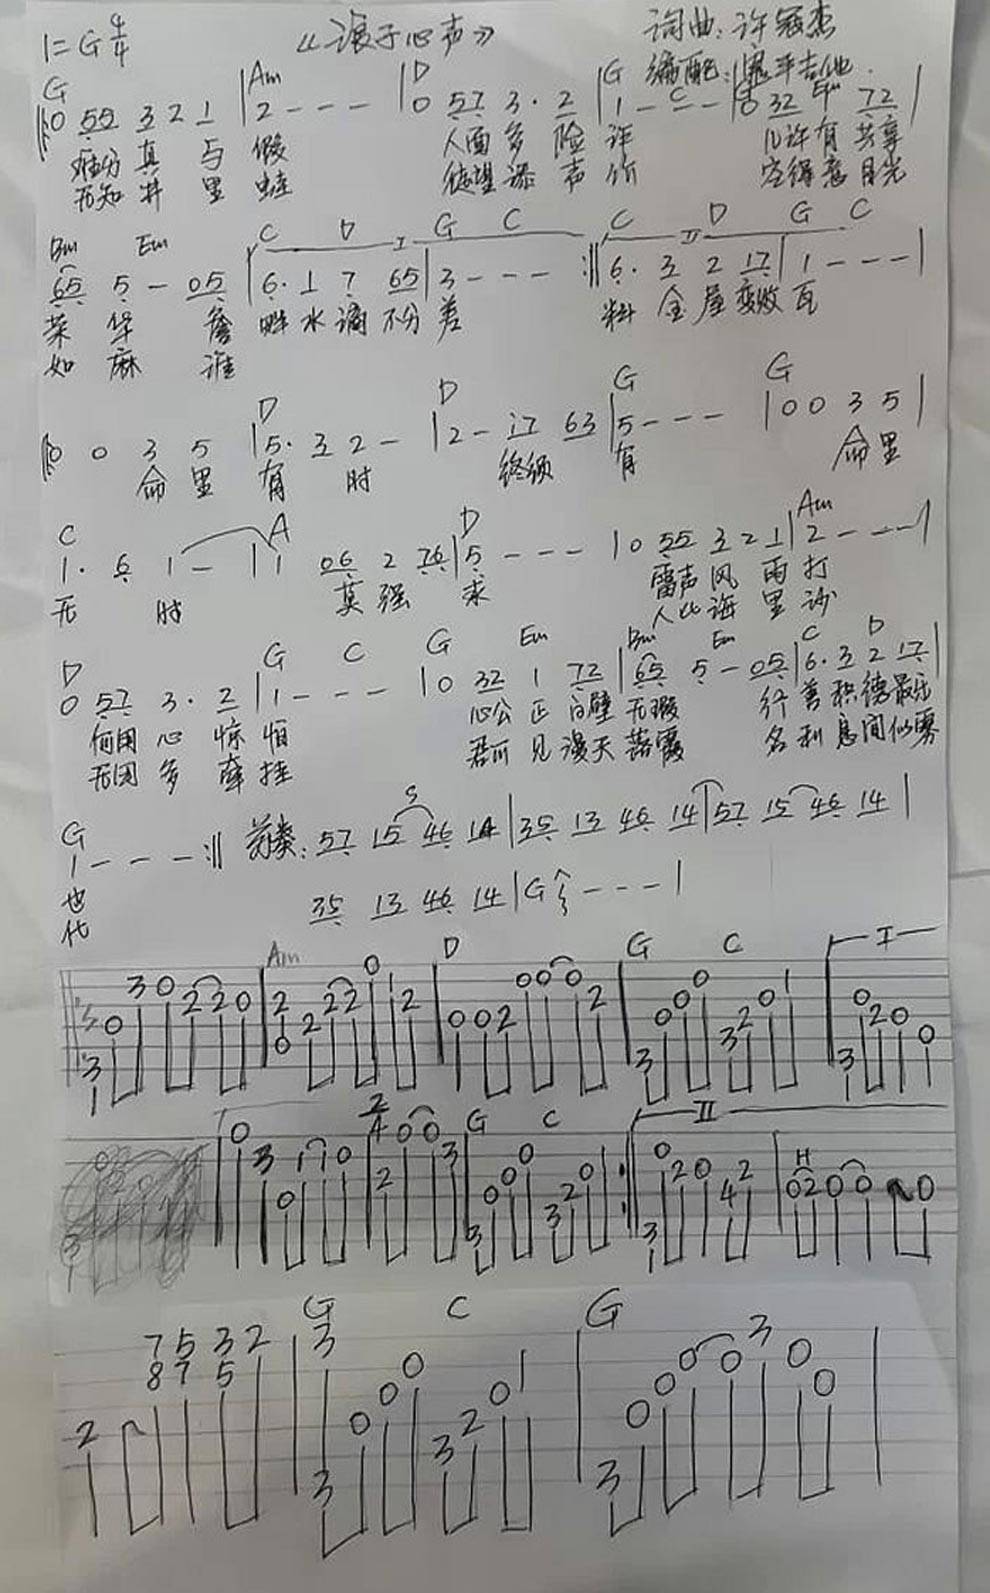 1=G 4/4 《浪子心声》 词曲:许冠杰
编配: 平吉他.
G Am D G C Em
0 55 3 2 1 | 2 - - - | 0 57 3· 2 | 1 - - - | 0 32 1 72 |
难分 真 与 假 人面 多 险 诈 几许 有 共享
无知 井 里 蛙 徒望 添 声 价 空得意 目光
Bm Em C D I G C C D II G C
65 5 - 05 | 6· 1 7 65 | 3 - - - :|| 6· 3 2 17 | 1 - - - |
荣 华 簷 畔 水 滴 不分 差 料 金 屋 变败 瓦
如 麻 谁
D D G G
0 0 3 5 | 5· 3 2 - | 2 - 17 63 | 5 - - - | 0 0 3 5 |
命 里 有 时 终须 有 命 里
C A D Am
1· 6 1 - | 1 06 2 76 | 5 - - - | 0 55 3 2 1 | 2 - - - |
无 时 莫 强 求 雷声 风 雨 打
人比 海 里 沙
D G C G Em Bm Em C D
0 57 3· 2 | 1 - - - | 0 32 1 72 | 65 5 - 05 | 6· 3 2 17 |
何用 心 惊 怕 心公 正 白壁 无瑕 行 善 积 德最乐
无因 多 牵 挂 君可 见 漫天 落霞 名 利 息间似雾
G S
1 - - - :|| 前奏: 57 15 46 14 | 35 13 46 14 | 57 15 46 14 |
也
化 35 13 46 14 | G - - - |
Am D G C I
3 0 3 0 2 2 0 | 2 0 2 2 2 0 1 2 | 0 0 2 0 0 0 2 | 3 0 0 0 3 2 0 1 | 3 0 2 0 0
G C II
0 3 0 1 1 0 | 2 0 0 3 | 3 0 0 0 3 2 0 : 3 0 2 0 4 2 | H 0 2 0 0 0
G C G
2 7 8 5 7 3 5 2 | 3 3 0 0 0 3 2 0 1 | 3 0 0 0 0 3 0 0 |